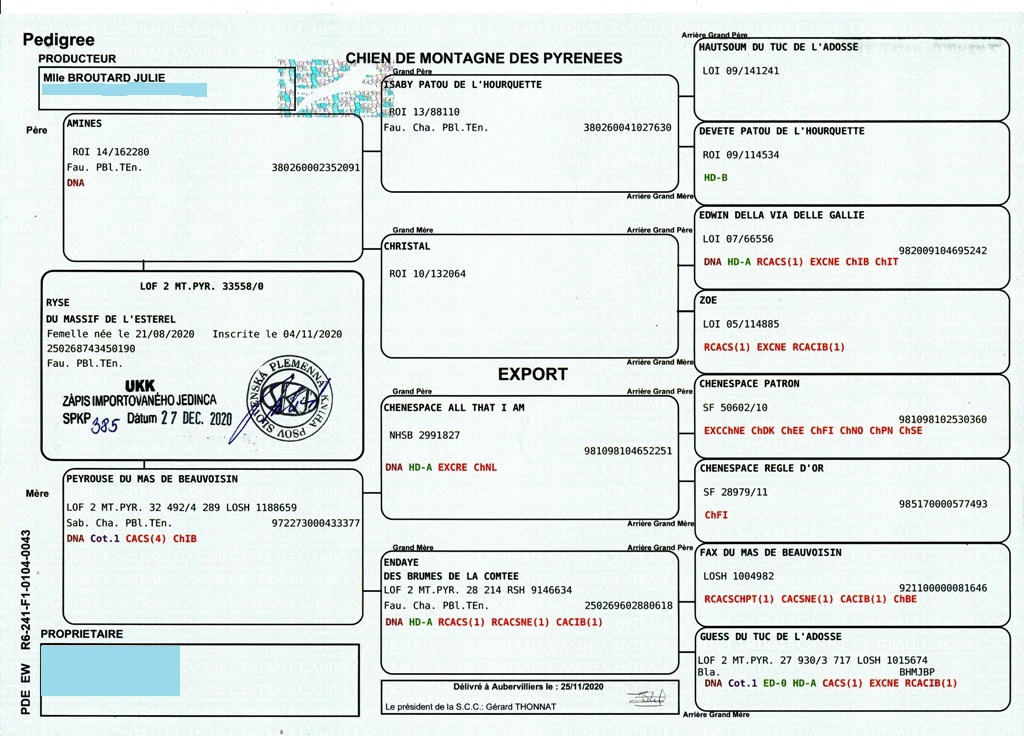 Pedigree
PRODUCTEUR
Mlle BROUTARD JULIE
CHIEN DE MONTAGNE DES PYRENEES
Père
AMINES
ROI 14/162280
Fau. PBl.TEn. 380260002352091
DNA
LOF 2 MT.PYR. 33558/0
RYSE
DU MASSIF DE L'ESTEREL
Femelle née le 21/08/2020 Inscrite le 04/11/2020
250268743450190
Fau. PBl.TEn.
UKK
ZÁPIS IMPORTOVANÉHO JEDINCA
SPKP 385 Dátum 27 DEC. 2020
SLOVENSKÁ PLEMENNÁ KNIHA PSOV
Mère
PEYROUSE DU MAS DE BEAUVOISIN
LOF 2 MT.PYR. 32 492/4 289 LOSH 1188659
Sab. Cha. PBl.TEn. 972273000433377
DNA Cot.1 CACS(4) ChIB
PROPRIETAIRE
PDE EW R6-241-F1-0104-0043
Grand Père
ISABY PATOU DE L'HOURQUETTE
ROI 13/88110
Fau. Cha. PBl.TEn. 380260041027630
Grand Mère
CHRISTAL
ROI 10/132064
EXPORT
Grand Père
CHENESPACE ALL THAT I AM
NHSB 2991827
981098104652251
DNA HD-A EXCRE ChNL
Grand Mère
ENDAYE
DES BRUMES DE LA COMTEE
LOF 2 MT.PYR. 28 214 RSH 9146634
Fau. Cha. PBl.TEn. 250269602880618
DNA HD-A RCACS(1) RCACSNE(1) CACIB(1)
Délivré à Aubervilliers le : 25/11/2020
Le président de la S.C.C.: Gérard THONNAT
Arrière Grand Père
HAUTSOUM DU TUC DE L'ADOSSE
LOI 09/141241
DEVETE PATOU DE L'HOURQUETTE
ROI 09/114534
HD-B
Arrière Grand Mère
Arrière Grand Père
EDWIN DELLA VIA DELLE GALLIE
LOI 07/66556
982009104695242
DNA HD-A RCACS(1) EXCNE ChIB ChIT
ZOE
LOI 05/114885
RCACS(1) EXCNE RCACIB(1)
Arrière Grand Mère
Arrière Grand Père
CHENESPACE PATRON
SF 50602/10
981098102530360
EXCChNE ChDK ChEE ChFI ChNO ChPN ChSE
CHENESPACE REGLE D'OR
SF 28979/11
985170000577493
ChFI
Arrière Grand Mère
Arrière Grand Père
FAX DU MAS DE BEAUVOISIN
LOSH 1004982
921100000081646
RCACSCHPT(1) CACSNE(1) CACIB(1) ChBE
GUESS DU TUC DE L'ADOSSE
LOF 2 MT.PYR. 27 930/3 717 LOSH 1015674
Bla. BHMJBP
DNA Cot.1 ED-0 HD-A CACS(1) EXCNE RCACIB(1)
Arrière Grand Mère